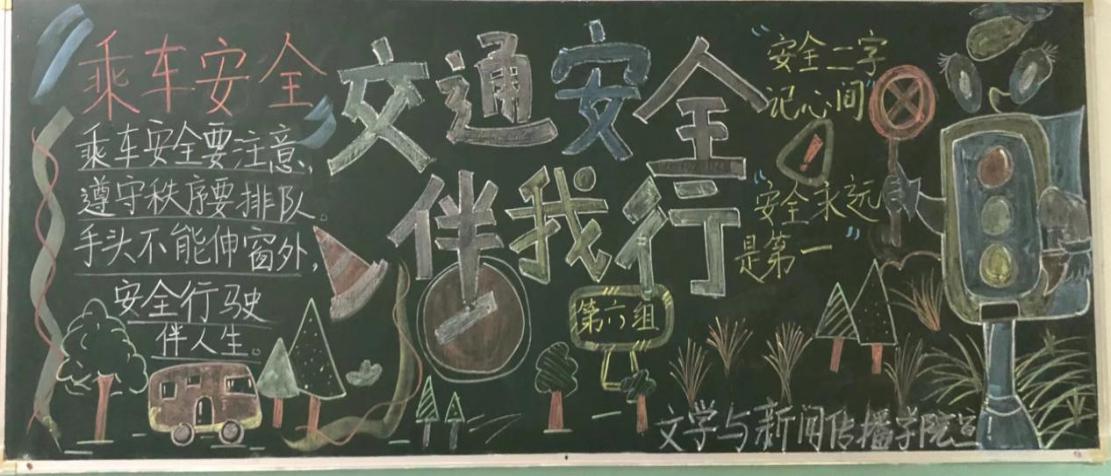 乘车安全
乘车安全要注意,
遵守秩序要排队。
手头不能伸窗外,
安全行驶
伴人生。
交通安全
伴我行
第六组
"安全二字
记心间"
"安全永远
是第一"
文学与新闻传播学院